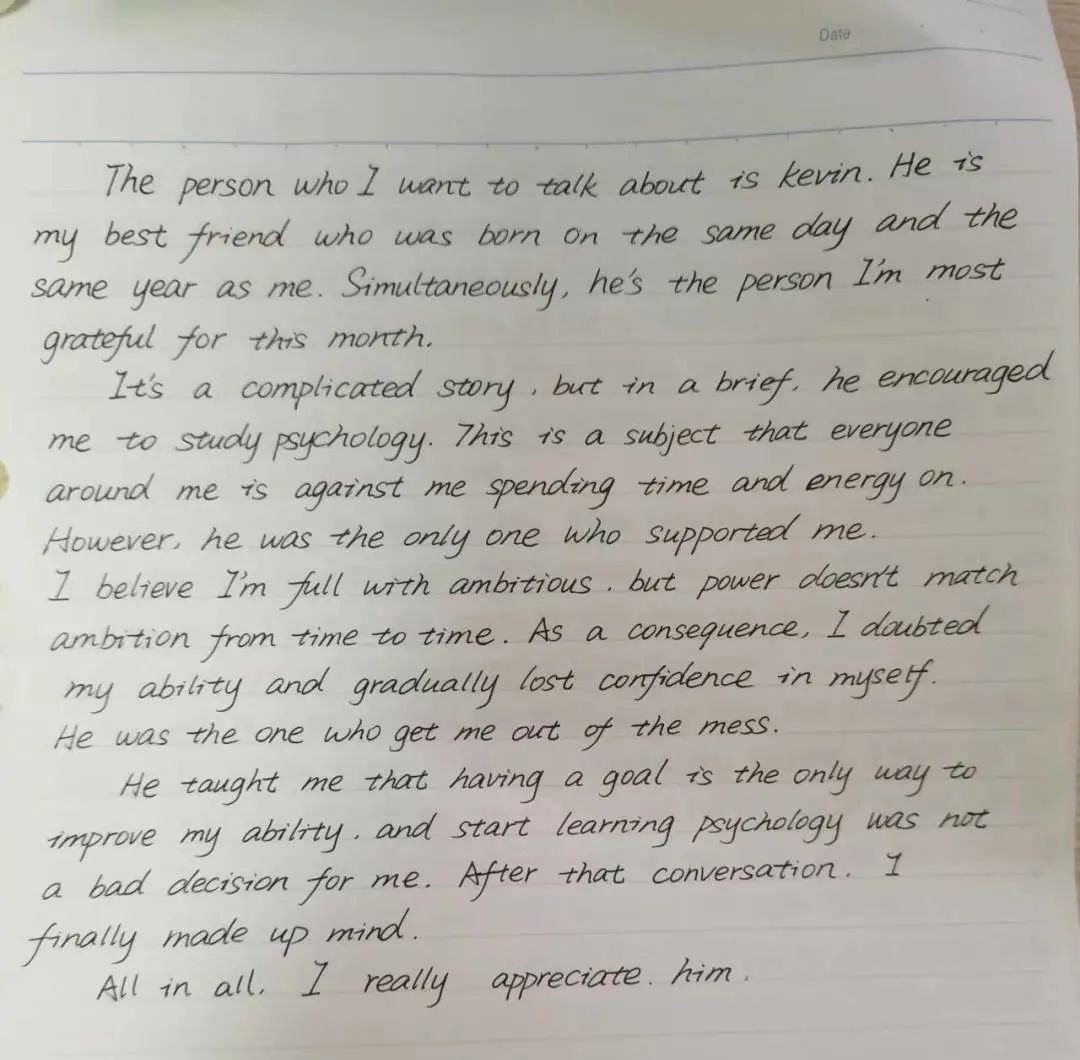 Date
The person who I want to talk about is kevin. He is
my best friend who was born on the same day and the
same year as me. Simultaneously, he's the person I'm most
grateful for this month.
It's a complicated story, but in a brief, he encouraged
me to study psychology. This is a subject that everyone
around me is against me spending time and energy on.
However, he was the only one who supported me.
I believe I'm full with ambitious, but power doesn't match
ambition from time to time. As a consequence, I doubted
my ability and gradually lost confidence in myself.
He was the one who get me out of the mess.
He taught me that having a goal is the only way to
improve my ability, and start learning psychology was not
a bad decision for me. After that conversation. I
finally made up mind.
All in all, I really appreciate. him.